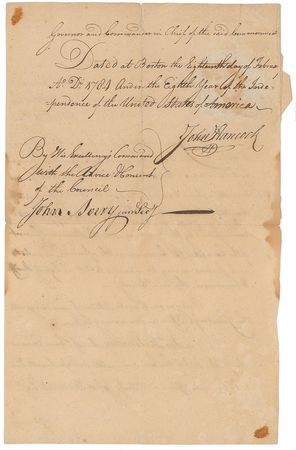 Governor and Commander in Chief of the said Commonwealth
Dated at Boston the Eighteenth day of Febru.y
A.o D.i 1784 And in the Eighth Year of the Inde
pendence of the United States of America
John Hancock
By His Excellency's Command
with the Advice & Consent
of the Council
John Avery jun Sec.y